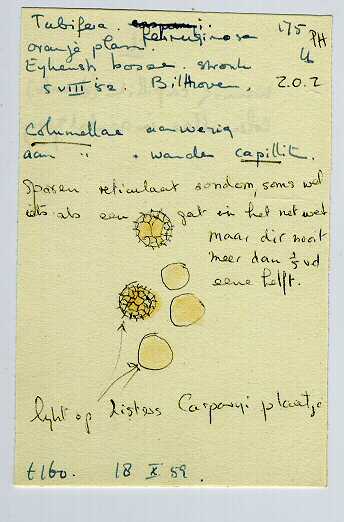 Tubifera casparyi. 175 PH
ferruginosa
oranje plasm. 4
Eykenst bossen. stronk
5 VIII 52. Bilthoven. 2.0.2
Columellae aanwezig
aan " " wanden capillit.
Sporen reticulaat rondom, soms wel
iets als een gat in het netwerk
maar dit nooit
meer dan 1/5 vd
eene helft.
lijkt op Listers Casparyi plaatje
t160. 18 X 59.